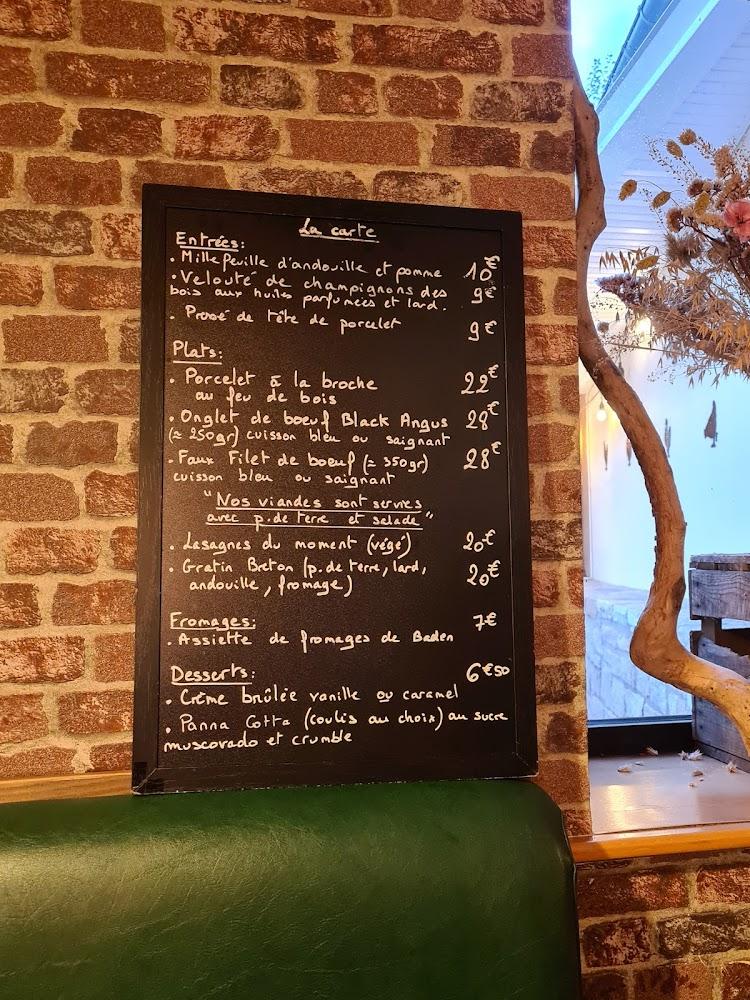 La carte
Entrées:
. Millefeuille d'andouille et pomme 10€
. Velouté de champignons des
bois aux huiles parfumées et lard. 9€
. Pressé de tête de porcelet 9€
Plats:
. Porcelet à la broche 22€
au feu de bois
. Onglet de boeuf Black Angus 28€
(≈ 250gr) cuisson bleu ou saignant
. Faux Filet de boeuf (≈ 350gr) 28€
cuisson bleu ou saignant
"Nos viandes sont servies
avec p. de terre et salade"
. Lasagnes du moment (végé) 20€
. Gratin Breton (p. de terre, lard, 20€
andouille, fromage)
Fromages: 7€
. Assiette de fromages de Baden
Desserts: 6€50
. Crème brûlée vanille ou caramel
. Panna Cotta (coulis au choix) au sucre
muscovado et crumble